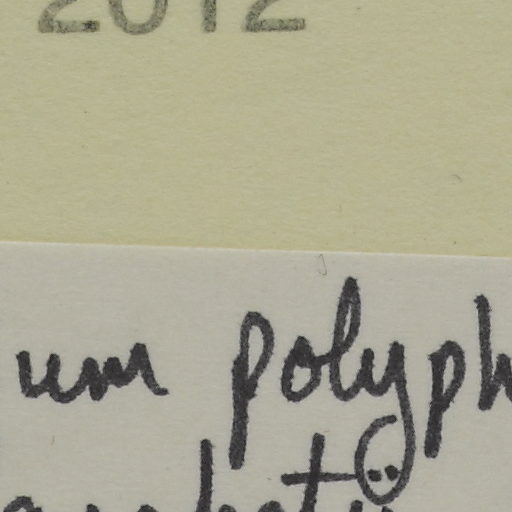 2012
um polyph